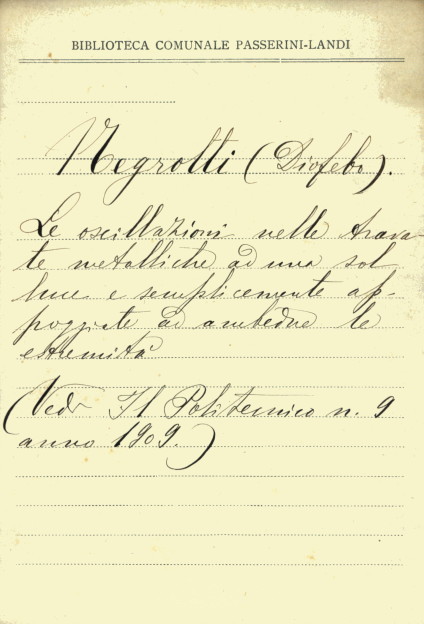 BIBLIOTECA COMUNALE PASSERINI-LANDI
Negrotti (Diofebo).
Le oscillazioni nelle trava-
te metalliche ad una sol
luce e semplicemente ap-
poggiate ad ambedue le
estremità
(Vedi Il Politecnico n. 9
anno 1909.)